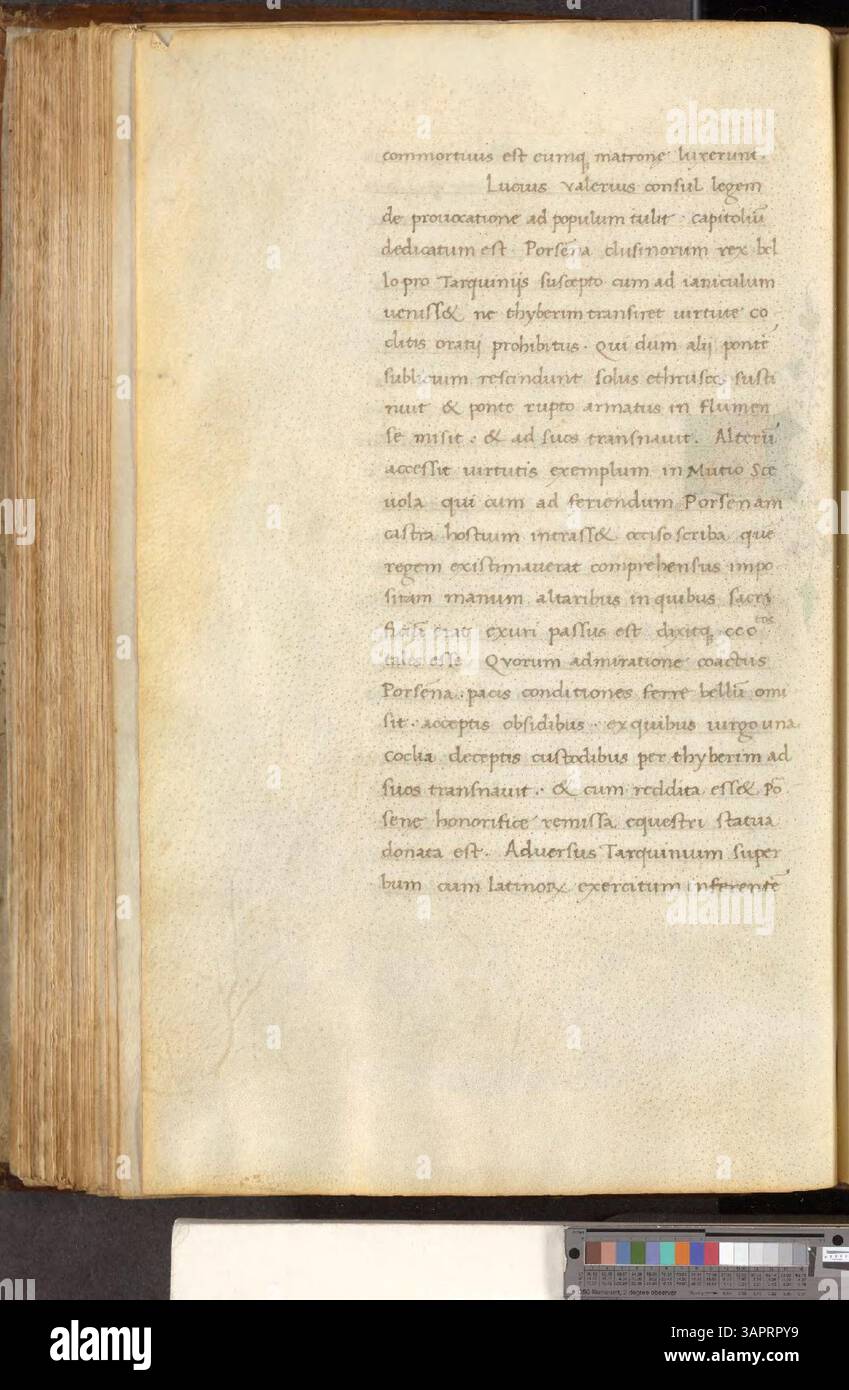 commortuus est eumq matrone luxerunt.
Lucius Valerius consul legem
de prouocatione ad populum tulit. capitoliū
dedicatum est. Porsena clusinorum rex bel
lo pro Tarquinijs suscepto cum ad ianiculum
uenisset ne thyberim transiret uirtute co
clitis oratij prohibitus. Qui dum alij pontē
sublicium rescindunt solus ethruscos susti
nuit & ponte rupto armatus in flumen
se misit. & ad suos transnauit. Alterū
accessit uirtutis exemplum in Mutio Sce
uola qui cum ad feriendum Porsenam
castra hostium intrass& occiso scriba que
regem existimauerat comprehensus impo
sitam manum altaribus in quibus sacri
exuri passus est dixitq ccc tos
tales esse Quorum admiratione coactus
Porsena. pacis conditiones ferre bellū omi
sit. acceptis obsidibus. ex quibus uirgo una
coclia deceptis custodibus per thyberim ad
suos transnauit. & cum reddita ess& Po
sene honorifice remissa equestri statua
donata est. Adversus Tarquinium super
bum cum latinoꝝ exercitum inferentē
alamy
Image ID: 3APRPY9
www.alamy.com